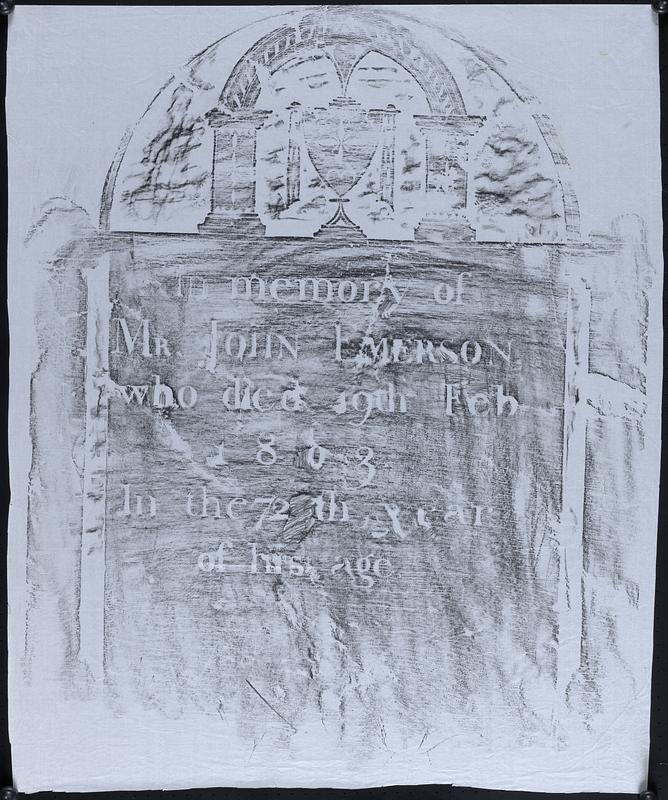 In memory of
Mr. John Emerson
who died 19th Feb
1803
In the 72th year
of his age